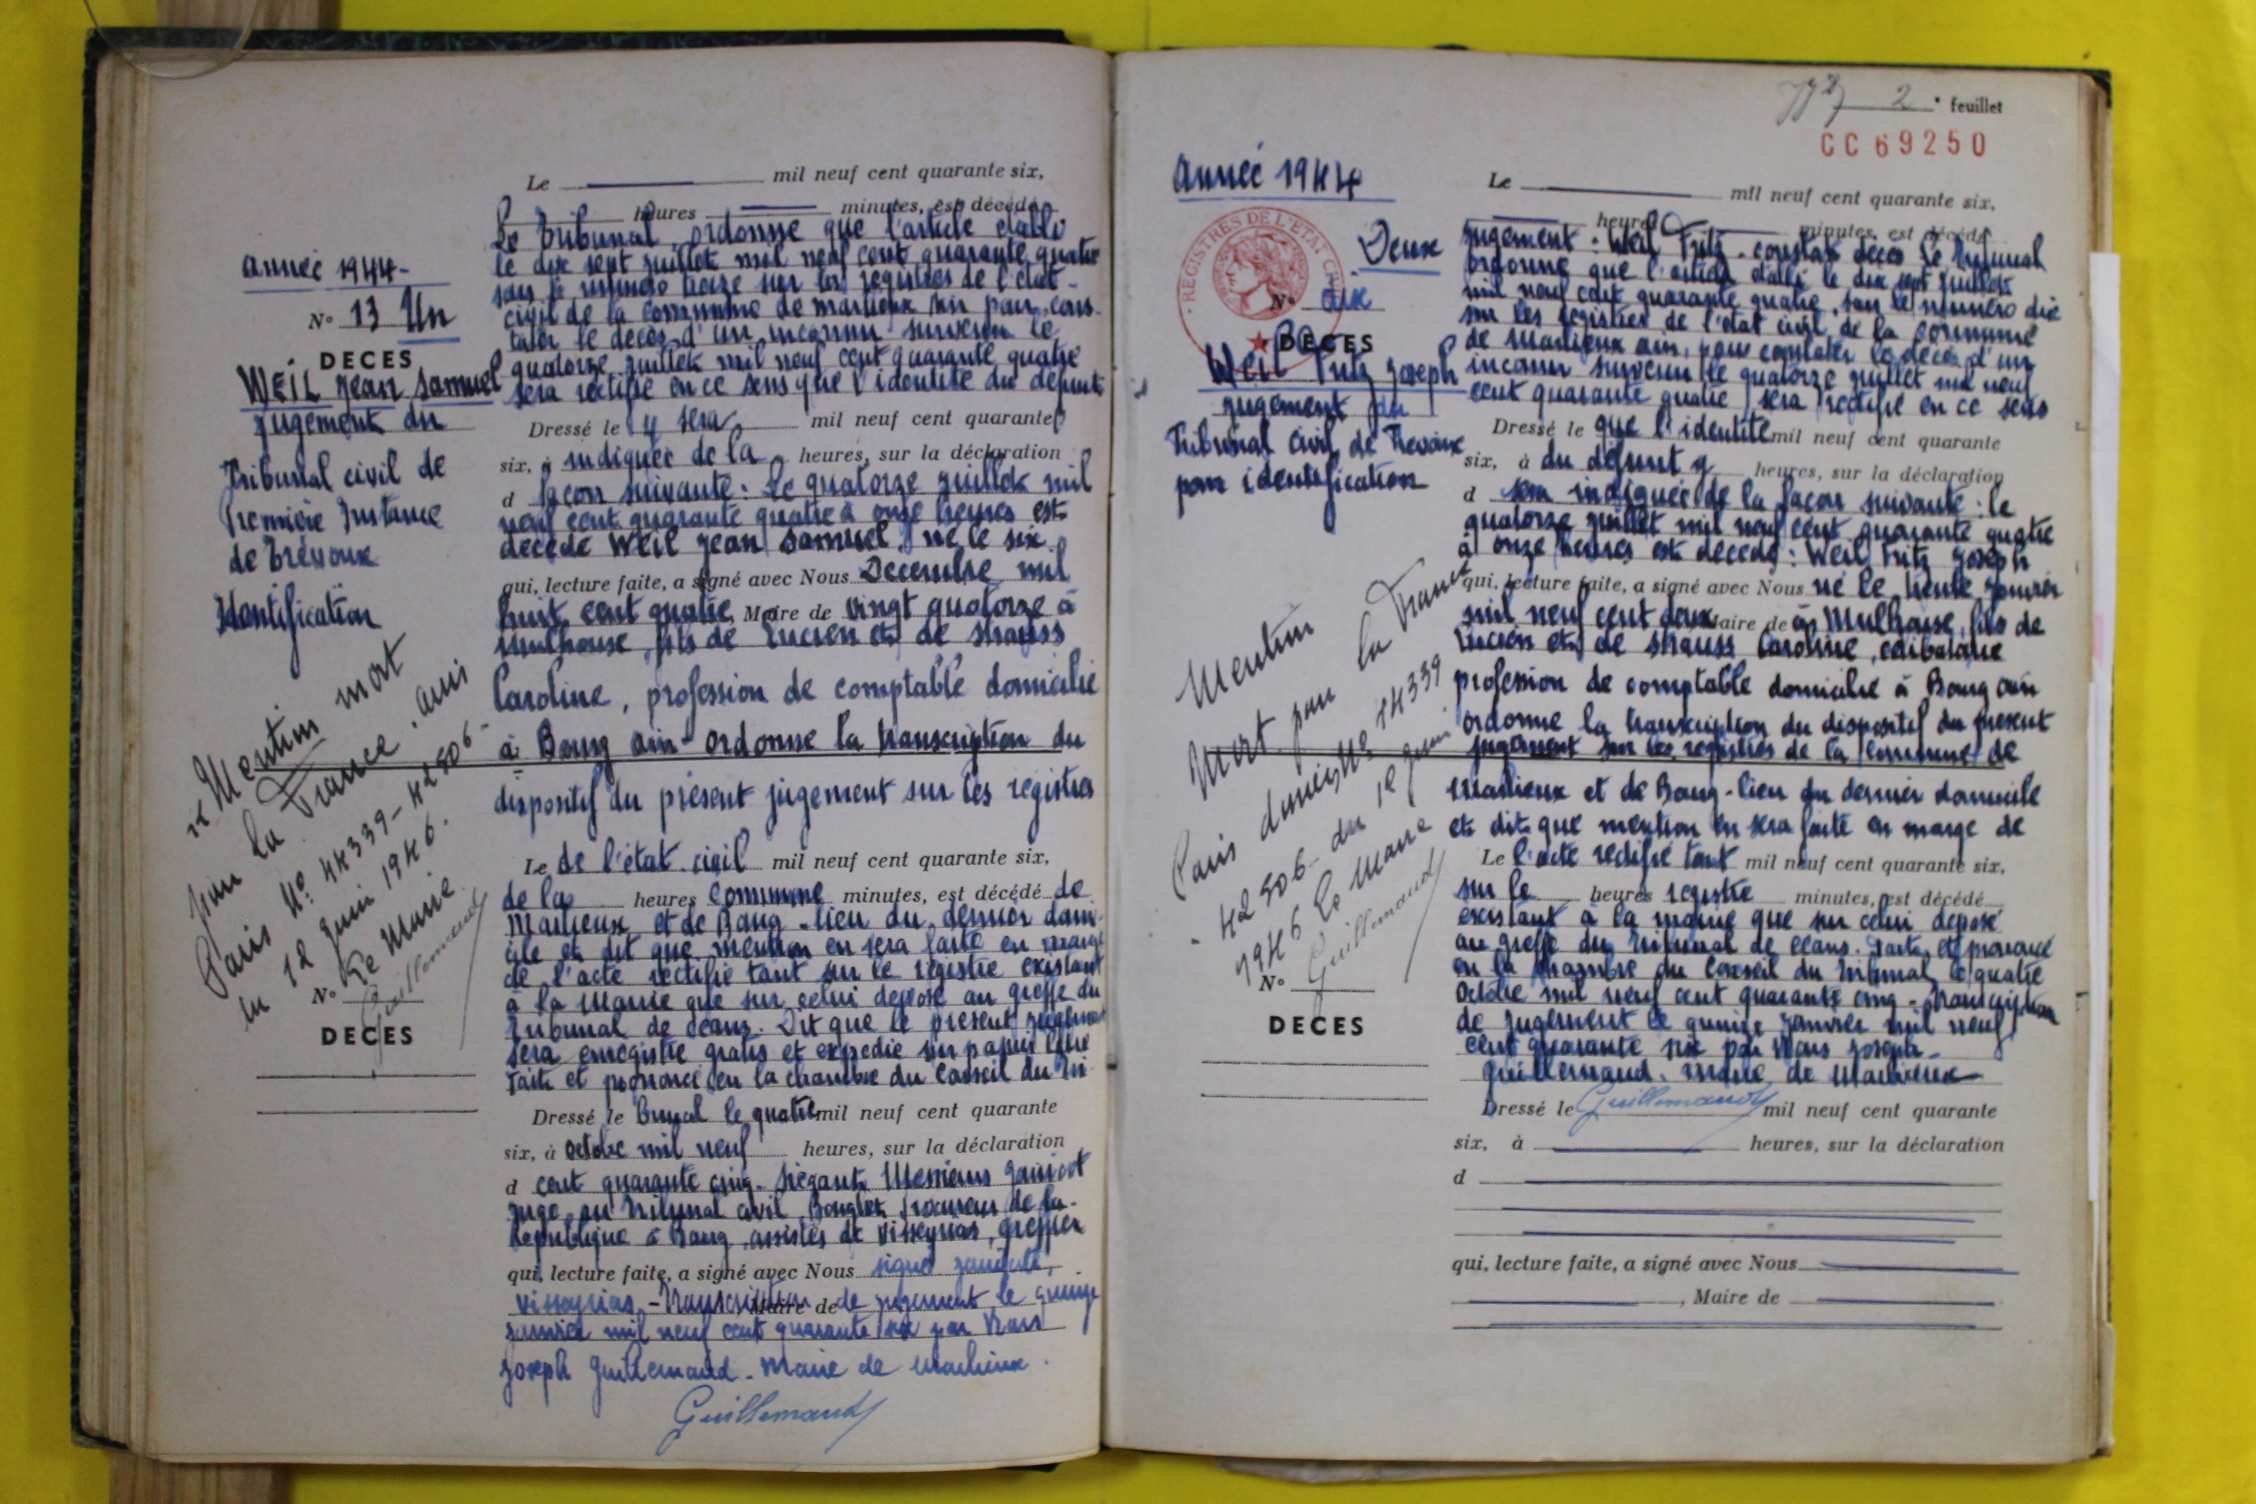 Le mil neuf cent quarante six,
heures minutes, est décédé
Le Tribunal ordonne que l'article établi
le dix sept juillet mil neuf cent quarante quatre
sous le numéro treize sur les registres de l'état
civil de la commune de Marlieux Ain pour cons-
tater le décès d'un inconnu survenu le
quatorze juillet mil neuf cent quarante quatre
sera rectifié en ce sens que l'identité du défunt
année 1944-
N° 13 Un
DECES
WEIL Jean Samuel
jugement du
Tribunal civil de
Première Instance
de Trévoux
Identification
Dressé le y sera mil neuf cent quarante
six, à indiquée de la heures, sur la déclaration
d façon suivante : Le quatorze juillet mil
neuf cent quarante quatre à onze heures est
décédé Weil Jean Samuel, né le six
qui, lecture faite, a signé avec Nous Décembre mil
huit cent quatre, Maire de vingt quatorze à
Mulhouse, fils de Lucien et de Strauss
Caroline, profession de comptable domicilié
à Bourg Ain - ordonne la transcription du
dispositif du présent jugement sur les registres
Mention mort
pour la France. avis
Paris N° 44339-42506-
du 12 juin 1946.
Le Maire
Guillemaud
Le de l'état civil mil neuf cent quarante six,
de la heures commune minutes, est décédé de
Marlieux et de Bourg - lieu du dernier domi-
cile et dit que mention en sera faite en marge
de l'acte rectifié tant sur le registre existant
à la Mairie que sur celui déposé au greffe du
Tribunal de céans. Dit que le présent jugement
sera enregistré gratis et expédié sur papier libre
Fait et prononcé en la chambre du Conseil du Tri-
N°
DECES
Dressé le bunal le quatre mil neuf cent quarante
six, à octobre mil neuf heures, sur la déclaration
d cent quarante cinq. Siégeant Messieurs
juge au Tribunal civil, procureur de la
République à Bourg, assistés de Visseyrias, greffier
qui, lecture faite, a signé avec Nous signé
Visseyrias - Transcription Maire de de jugement le quinze
janvier mil neuf cent quarante six par Nous
Joseph Guillemaud - Maire de Marlieux.
Guillemaud
2 e feuillet
CC69250
Année 1944
REGISTRES DE L'ETAT CIVIL
Deux
N° dix
DECES
Weil Fritz Joseph
jugement du
Tribunal Civil de Trévoux
pour identification
Le mil neuf cent quarante six,
heures minutes, est décédé
jugement : Weil Fritz - constat décès Le Tribunal
ordonne que l'article établi le dix sept juillet
mil neuf cent quarante quatre, sous le numéro dix
sur les registres de l'état civil de la commune
de Marlieux ain, pour constater le décès d'un
inconnu survenu le quatorze juillet mil neuf
cent quarante quatre sera rectifié en ce sens
Dressé le que l'identité mil neuf cent quarante
six, à du défunt y heures, sur la déclaration
d sera indiquée de la façon suivante : le
quatorze juillet mil neuf cent quarante quatre
à onze heures est décédé : Weil Fritz Joseph
qui, lecture faite, a signé avec Nous né le trente janvier
mil neuf cent deux Maire de à Mulhouse, fils de
Lucien et de Strauss Caroline, célibataire
profession de comptable domicilié à Bourg ain
ordonne la transcription du dispositif du présent
jugement sur les registres de la Commune de
Marlieux et de Bourg - lieu du dernier domicile
et dit que mention en sera faite en marge de
Mention
Mort pour la France
Paris N° 44339
- 42506 du 12 juin
1946 Le Maire
Guillemaud
Le l'acte rectifié tant mil neuf cent quarante six,
sur le heures registre minutes, est décédé
existant à la mairie que sur celui déposé
au greffe du Tribunal de céans. Fait et prononcé
en la chambre du Conseil du Tribunal le quatre
Octobre mil neuf cent quarante cinq - Transcription
de jugement le quinze janvier mil neuf
cent quarante six par Nous Joseph
Guillemaud. Maire de Marlieux
N°
DECES
Dressé le Guillemaud mil neuf cent quarante
six, à heures, sur la déclaration
d
qui, lecture faite, a signé avec Nous
, Maire de